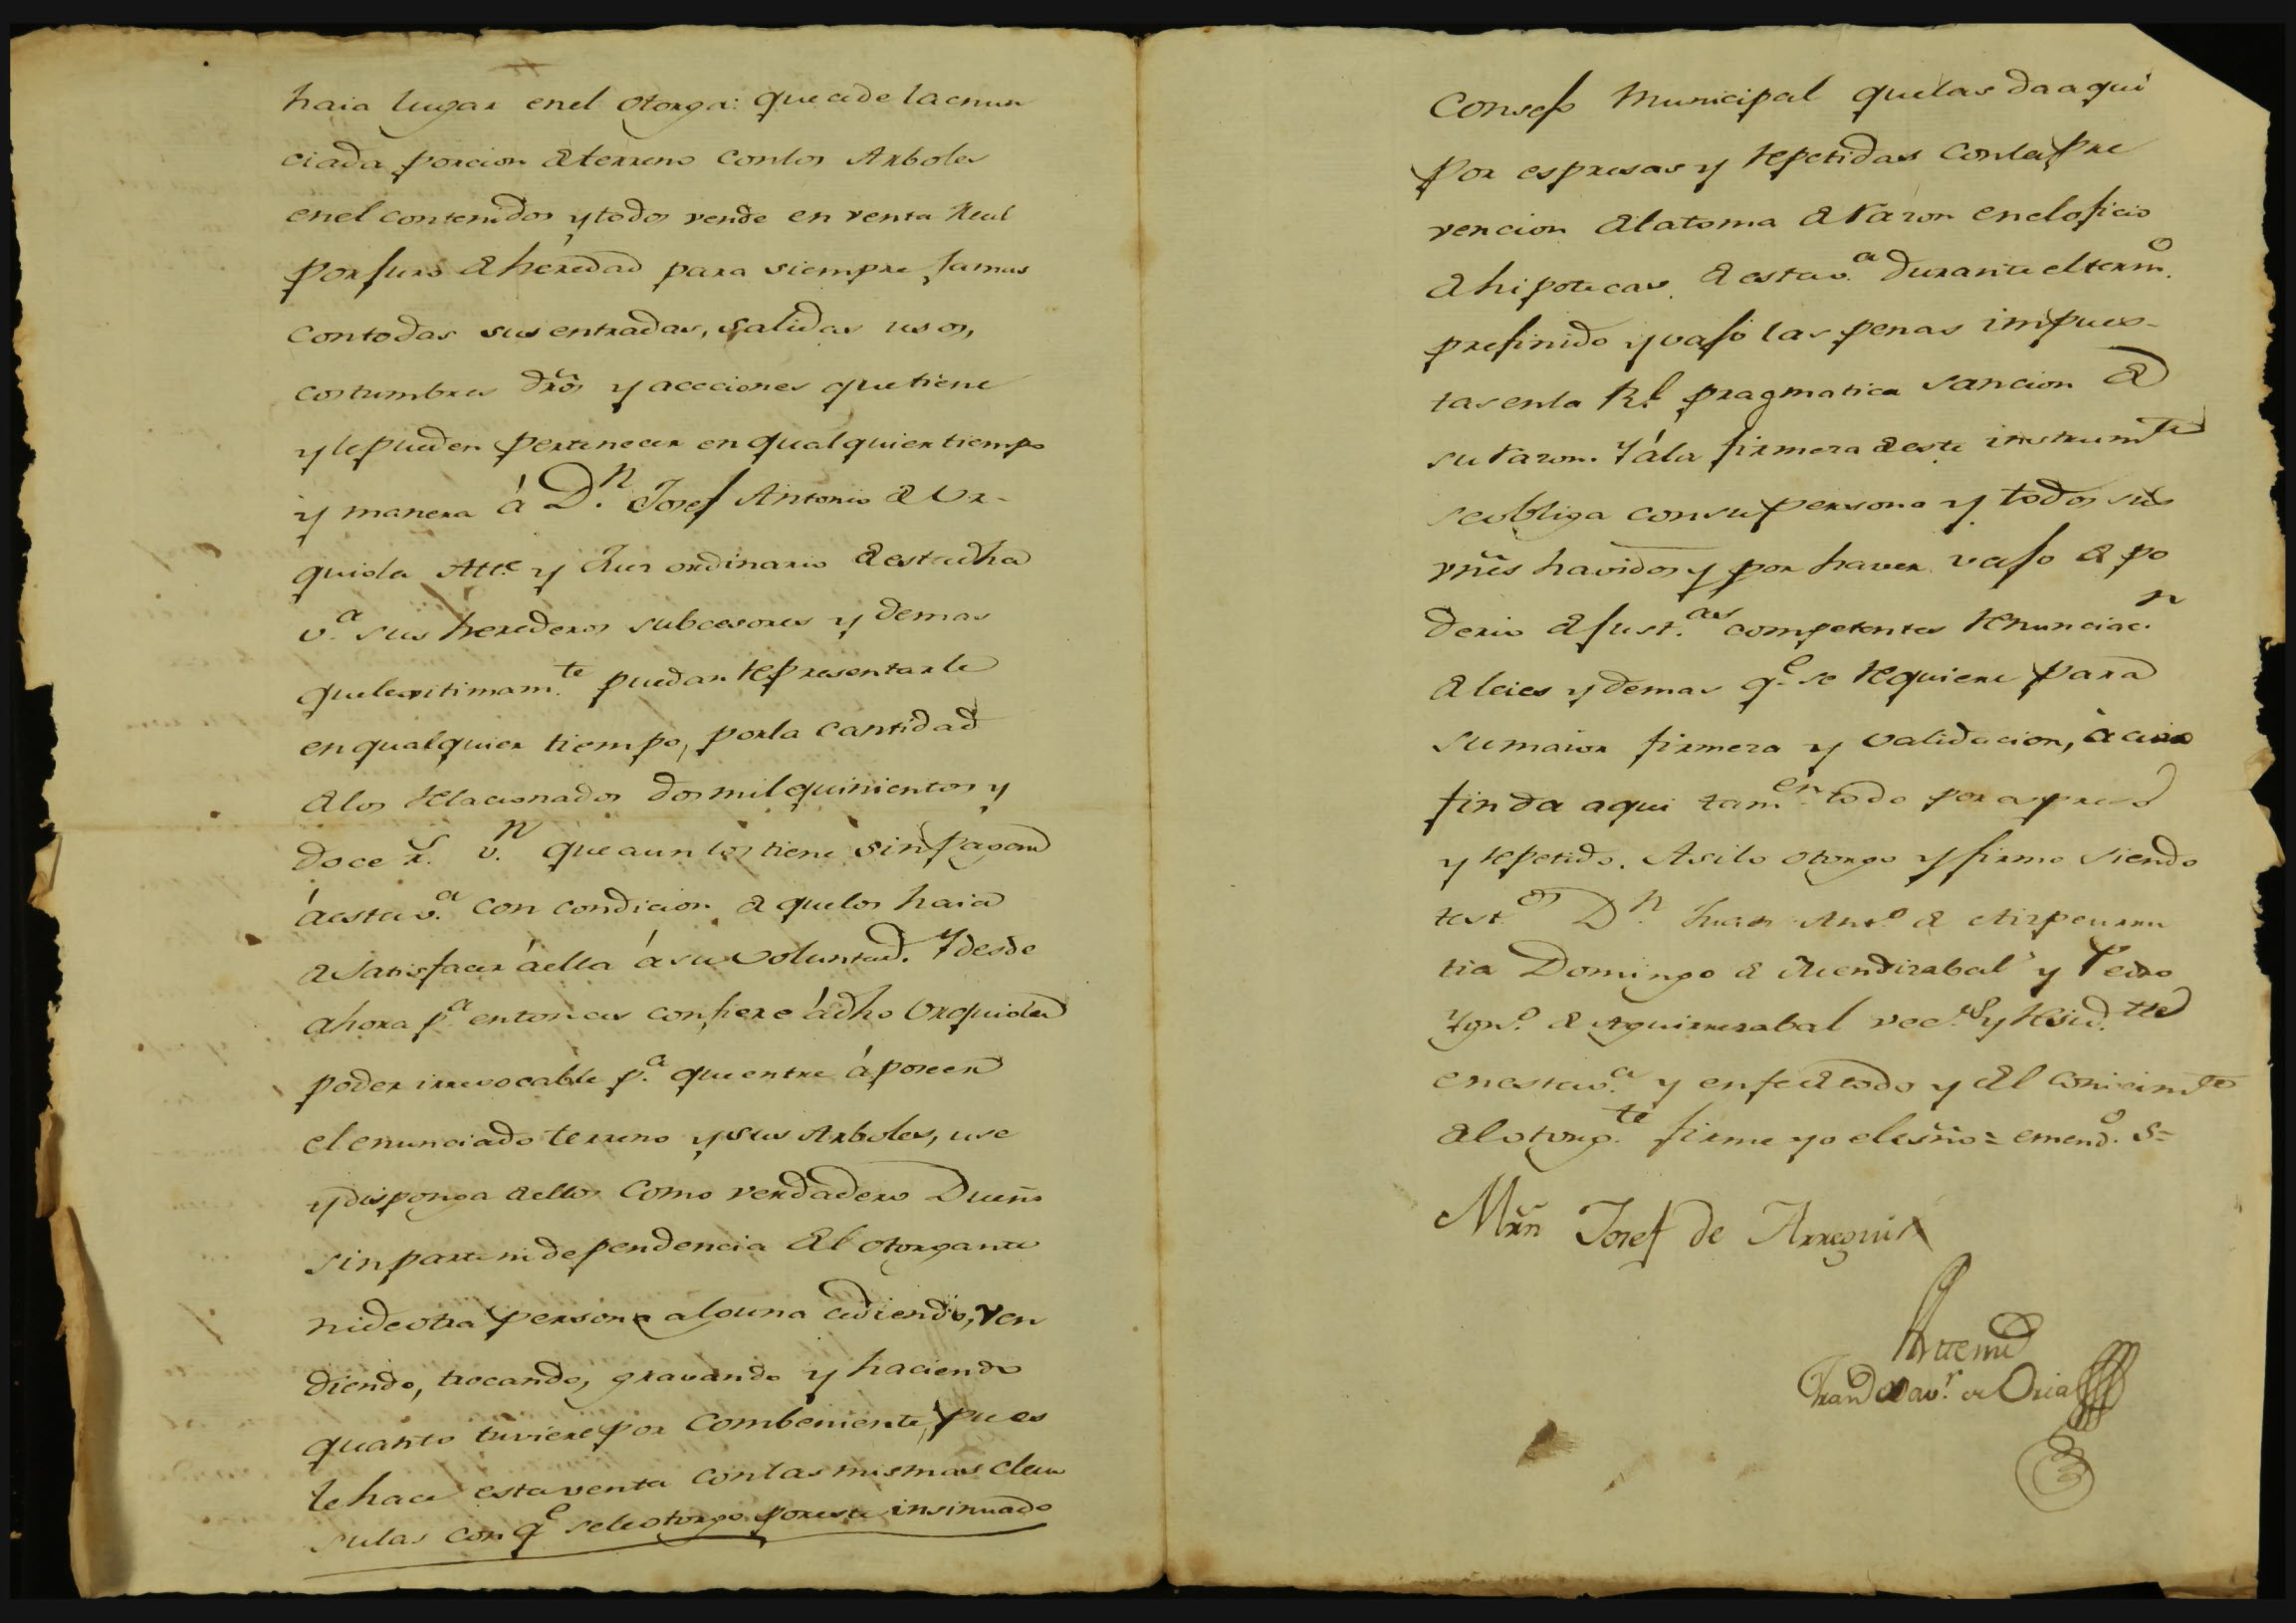 haia lugar enel otorga: que cede la enun
ciada porcion de terreno conlos Arboles
enel contenidos y todos vende en venta Real
por juro de heredad para siempre jamas
contodas sus entradas, salidas usos,
costumbres dr̃os y acciones que tiene
y le pueden pertenecer en qualquier tiempo
y manera á D.n Josef Antonio de Ur-
quiola Alc.e y Juez ordinario de esta dha
v.a sus herederos subcesores y demas
que lexitimam.te puedan representarle
en qualquier tiempo, por la cantidad
de los relacionados dos mil quinientos y
doce r.s v.n que aun los tiene sin pagar
á esta v.a con condicion de que los haia
de satisfacer á ella á su voluntad. Y desde
ahora p.a entonces confiere á dho Urquiola
poder irrevocable p.a que entre á poseer
el enunciado terreno y sus Arboles, use
y disponga de ellos como verdadero Dueño
sin parte ni dependencia del otorgante
ni de otra persona alguna cediendo, ven
diendo, trocando, gravando y haciendo
quanto tuviere por combeniente, pues
le hace esta venta con las mismas clau
sulas con q.e se le otorgo por este insinuado
Consejo Municipal que las da aqui
por espresas y repetidas con la pre
vencion de la toma de razon en el oficio
de hipotecas de esta v.a durante el term.o
prefinido y vajo las penas impues-
tas en la R.l pragmatica sancion de
su razon. Y á la firmeza de este instrum.to
se obliga con su persona y todos sus
vnẽs havidos y por haver vajo de po
derio de just.as competentes renunciac.n
de leies y demas q.e se requiere para
su maior firmeza y validacion, á cuio
fin da aqui tam.en todo por espreso
y repetido. Asi lo otorgo y firmo siendo
test.os D.n Juan Ant.o de Aizpeurru
tia Domingo de Mendizabal y Pedro
Ygn.o de Aguirrezabal vec.s y resid.tes
en esta v.a y en fe de todo y del conicim.to
del otorg.te firme yo el esño = emend.o s=
Mrñ Josef de Arregui
Ante mi
Fran.co Xav.r de Oria